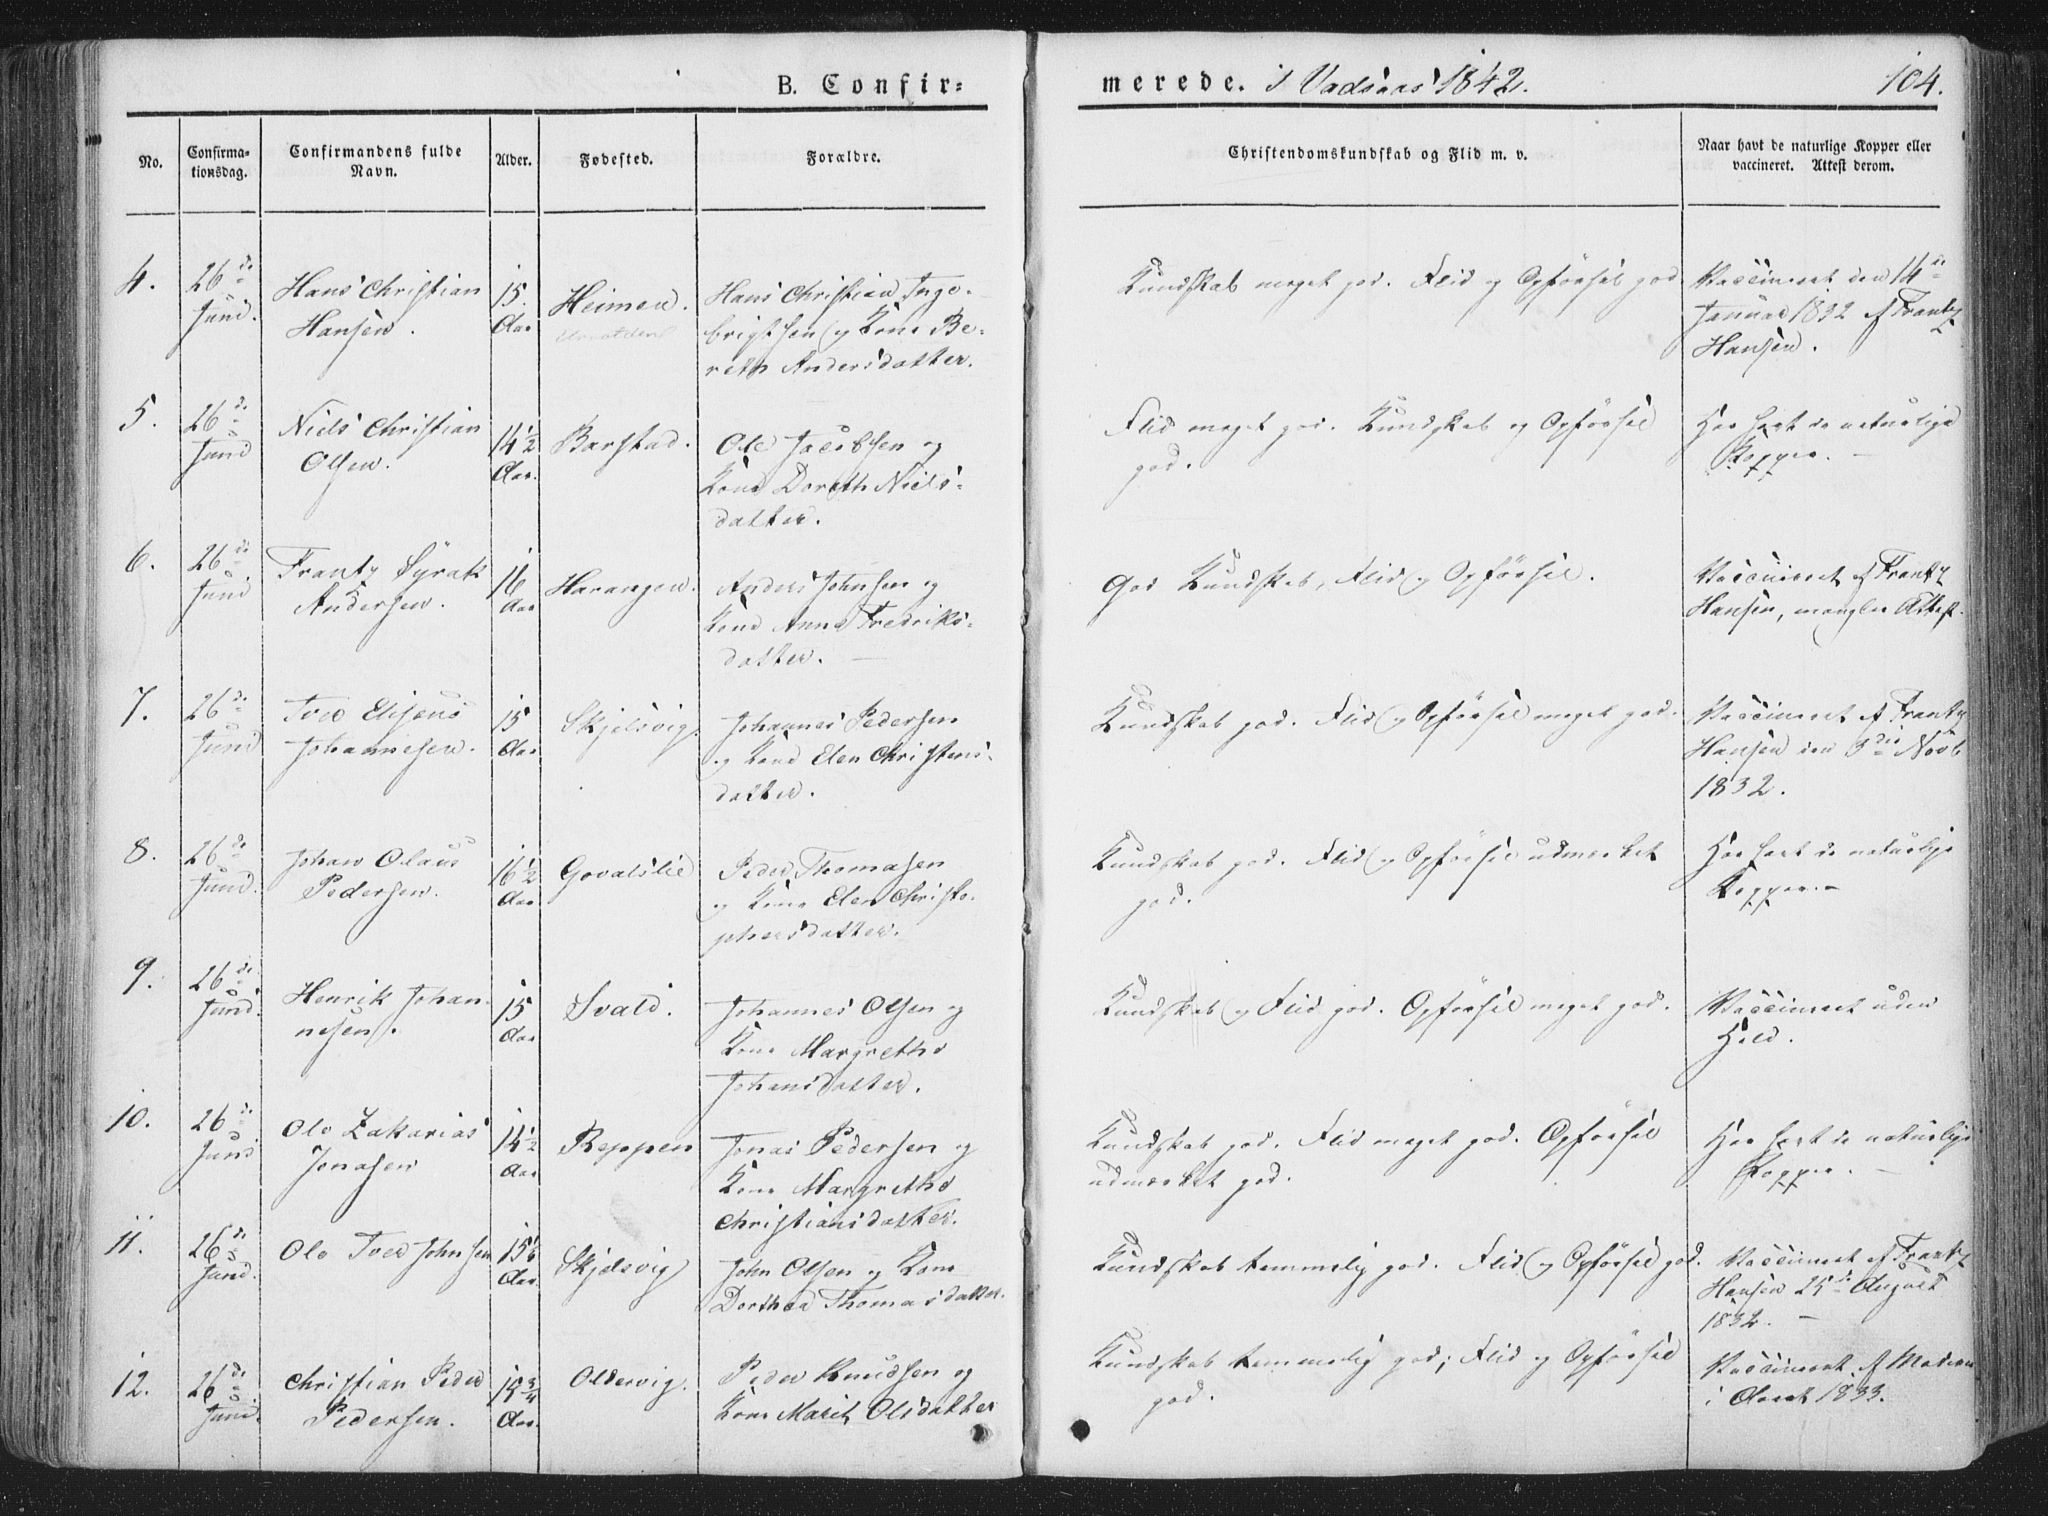 B. Confir-
merede. i Vadsaas 1842.
104.
No.
Confirma-
tionsdag.
Confirmandens fulde
Navn.
Alder.
Fødested.
Forældre.
Christendomskundskab og Flid m. v.
Naar havt de naturlige Kopper eller
vaccineret. Attest derom.
4.
26de
Juni.
Hans Christian
Hansen.
15.
Aar
Heimen.
Hans Christian Inge-
brigtsen og Kone Be-
reth Andersdatter.
Kundskab meget god. Flid og Opførsel god
Vaccineret den 14de
Januar 1832 af Frantz
Hansen.
5.
26de
Juni
Niels Christian
Olsen.
14 1/2
Aar.
Barstad.
Ole Jacobsen og
Kone Doreth Niels-
datter.
Flid meget god. Kundskab og Opførsel
god.
Har havt de naturlige
Kopper. -
6.
26de
Juni
Frantz Syrak
Andersen.
16
Aar
Harangen.
Anders Johnsen og
Kone Anne Fredriks-
datter. -
God Kundskab, Flid og Opførsel.
Vaccineret af Frantz
Hansen, mangler Attest.
7.
26de
Juni
Tved Eliseus
Johannesen.
15
Aar
Skjelsvig
Johannes Pedersen
og Kone Elen Christens-
datter.
Kundskab god. Flid og Opførsel meget god.
Vaccineret af Frantz
Hansen den 5die Novb.
1832.
8.
26de
Juni.
Johan Olaus
Pedersen.
16 1/2
Aar
Govatslie
Peder Thomasen
og Kone Elen Christo-
phersdatter.
Kundskab god. Flid og Opførsel udmærket
god.
Har havt de naturlige
Kopper. -
9.
26de
Juni.
Henrik Johan-
nesen.
15
Aar
Svald.
Johannes Olsen og
Kone Margrethe
Johansdatter.
Kundskab og Flid god. Opførsel meget god.
Vaccineret uden
Held.
10.
26de
Juni
Ole Zakarias
Jonasen
14 1/2
Aar
Reppen
Jonas Pedersen og
Kone Margrethe
Christiansdatter.
Kundskab god. Flid meget god. Opførsel
udmærket god.
Har havt de naturlige
Kopper. -
11.
26de
Juni.
Ole Tved Johnsen
15 1/6
Aar.
Skjelsvig
John Olsen og Kone
Dorthea Thomasdatter.
Kundskab temmelig god. Flid og Opførsel god.
Vaccineret af Frantz
Hansen 25de August
1832. -
12.
26de
Juni.
Christian Peder
Pedersen.
15 3/4
Aar.
Oldervig.
Peder Knudsen og
Kone Marit Olsdatter
Kundskab temmelig god; Flid og Opførsel
god.
Vaccineret af
i Aaret 1833.